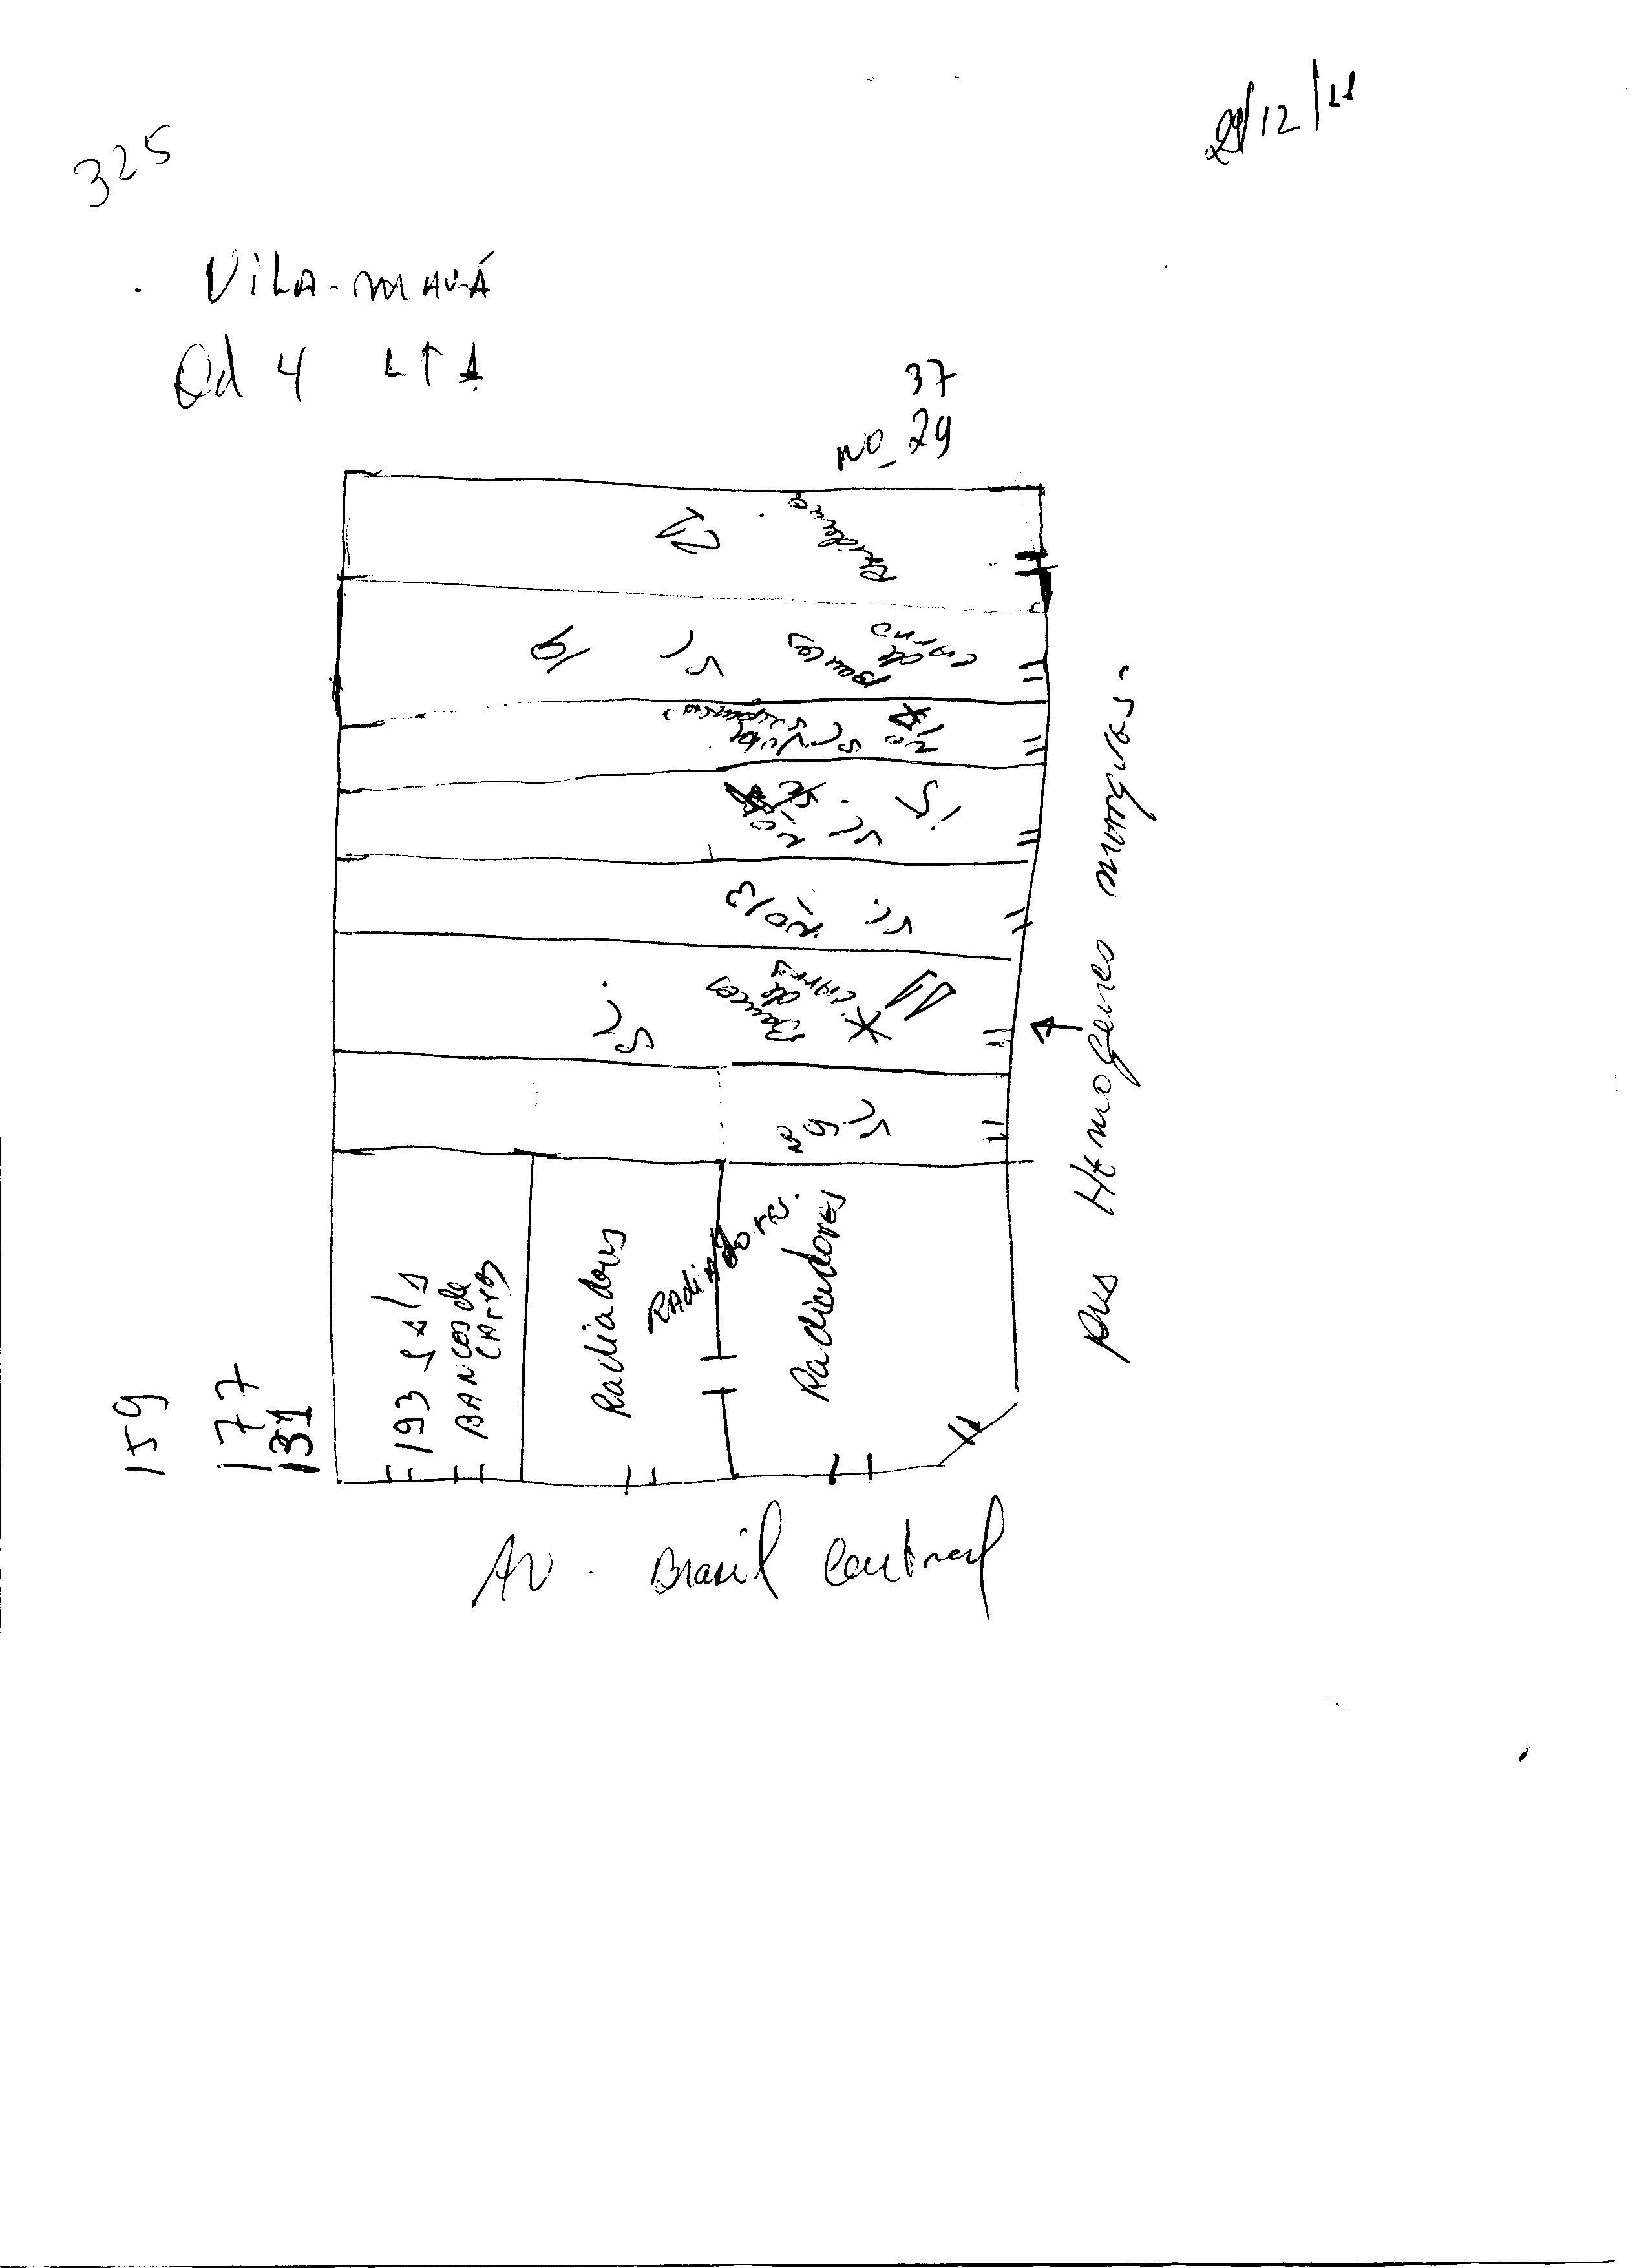 325
/12/11
Vila-mauá
Qd 4 LT 1
37
no 29
21
Bancos
de
carro
SL
19
no
SL
15
SL
no
SL
no 13
11
Bancos
de
carros
SL
SL
no 9
193 SAl1
BANCOS de
CArros
Radiadores
RAdiadores.
Radiadores
159
177
131
Rua Hermogenes marques.
AV. Brasil Central